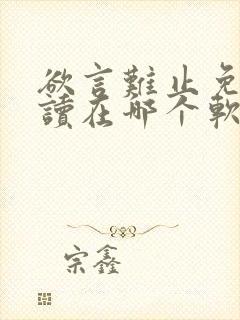 欲言難止免
讀在哪个軟
宗鑫